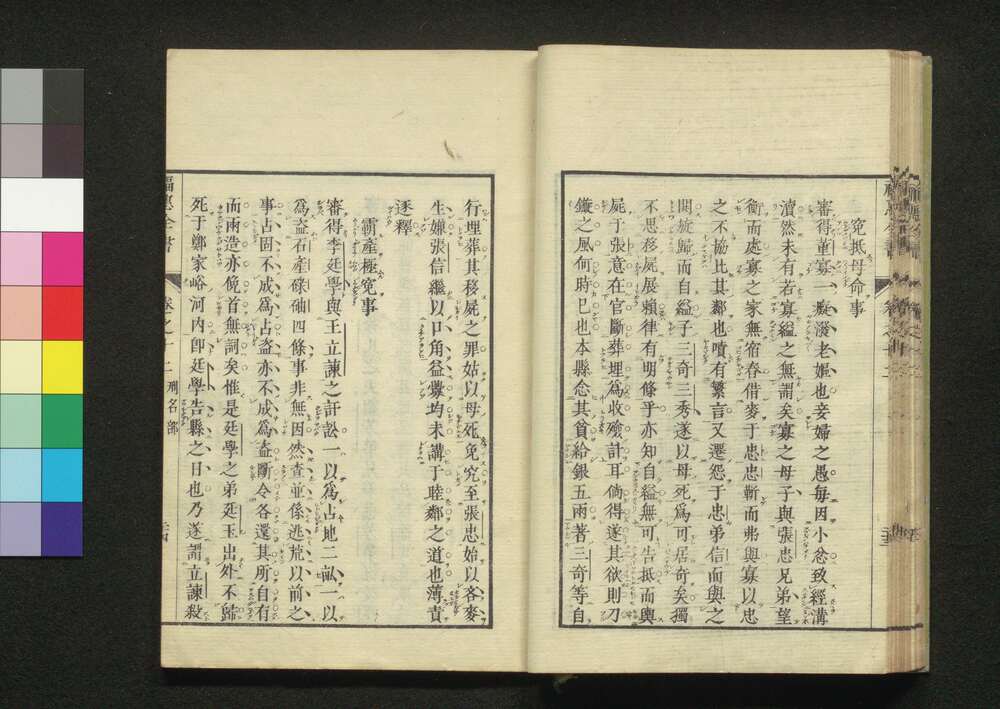 冤抵母命事
審得董寡一癡潑老嫗也妾婦之愚每因小忿致經溝
瀆然未有若寡縊之無謂矣寡之母子與張忠兄弟望
衡而處寡之家無宿舂借麥于忠忠靳而弗與寡以忠
之不協比其鄰也嘖有繁言又遷怨于忠弟信而與之
鬩旋歸而自縊子三奇三秀遂以母死爲可居奇矣獨
不思移屍展賴律有明條乎亦知自縊無可告抵而輿
屍于張意在官斷葬埋爲收殮計耳倘得遂其欲則刀
鐖之風何時已也本縣念其貧給銀五兩著三奇等自
行埋葬其移屍之罪姑以母死免究至張忠始以吝麥
生嫌張信繼以口角益釁均未講于睦鄰之道也薄責
逐釋
霸產極冤事
審得李廷學與王立諫之訐訟一以爲占地二畝一以
爲盜石產磔砷四條事非無因然查並係逃荒以前之
事占固不成爲占盜亦不成爲盜斷令各還其所自有
而兩造亦俛首無詞矣惟是廷學之弟廷玉出外不歸
死于鄭家峪河內卽廷學告縣之日也乃遂謂立諫殺
福惠全書
卷之十二
刑名部